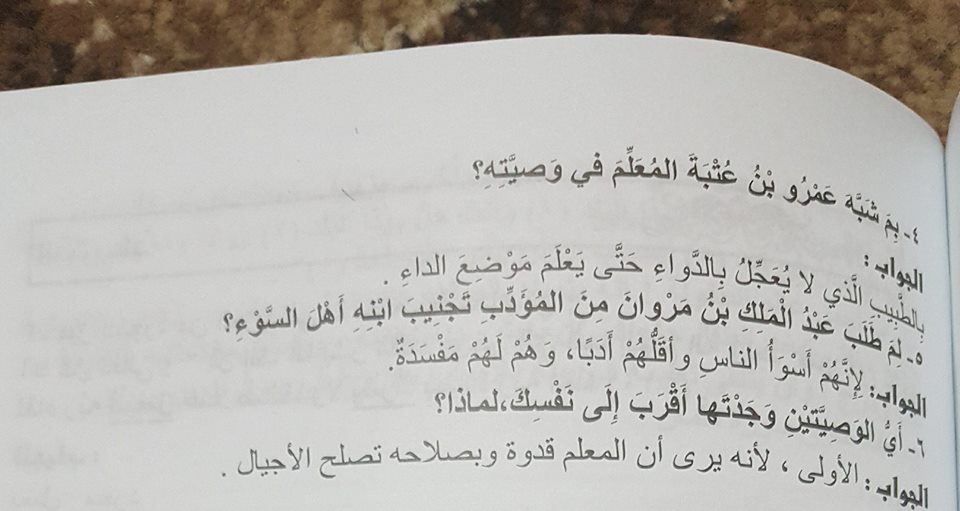 ٤- بِمَ شَبَّهَ عَمْرُو بْنُ عُتْبَةَ المُعَلِّمَ في وَصيَّتِهِ؟
الجواب :
بِالطَّبِيبِ الَّذي لا يُعَجِّلُ بِالدَّواءِ حَتَّى يَعْلَمَ مَوْضِعَ الداءِ .
٥- لِمَ طَلَبَ عَبْدُ الْمَلِكِ بْنُ مَرْوانَ مِنَ المُؤَدِّبِ تَجْنِيبَ ابْنِهِ أَهْلَ السَّوْءِ؟
الجواب: لِإنَّهُمْ أَسْوَأُ الناسِ وأقَلُّهُمْ أَدَبًا، وَهُمْ لَهُمْ مَفْسَدَةٌ.
٦- أَيُّ الوَصِيَّتَيْنِ وَجَدْتَها أَقْرَبَ إِلَى نَفْسِكَ،لماذا؟
الجواب : الأولى ، لأنه يرى أن المعلم قدوة وبصلاحه تصلح الأجيال .